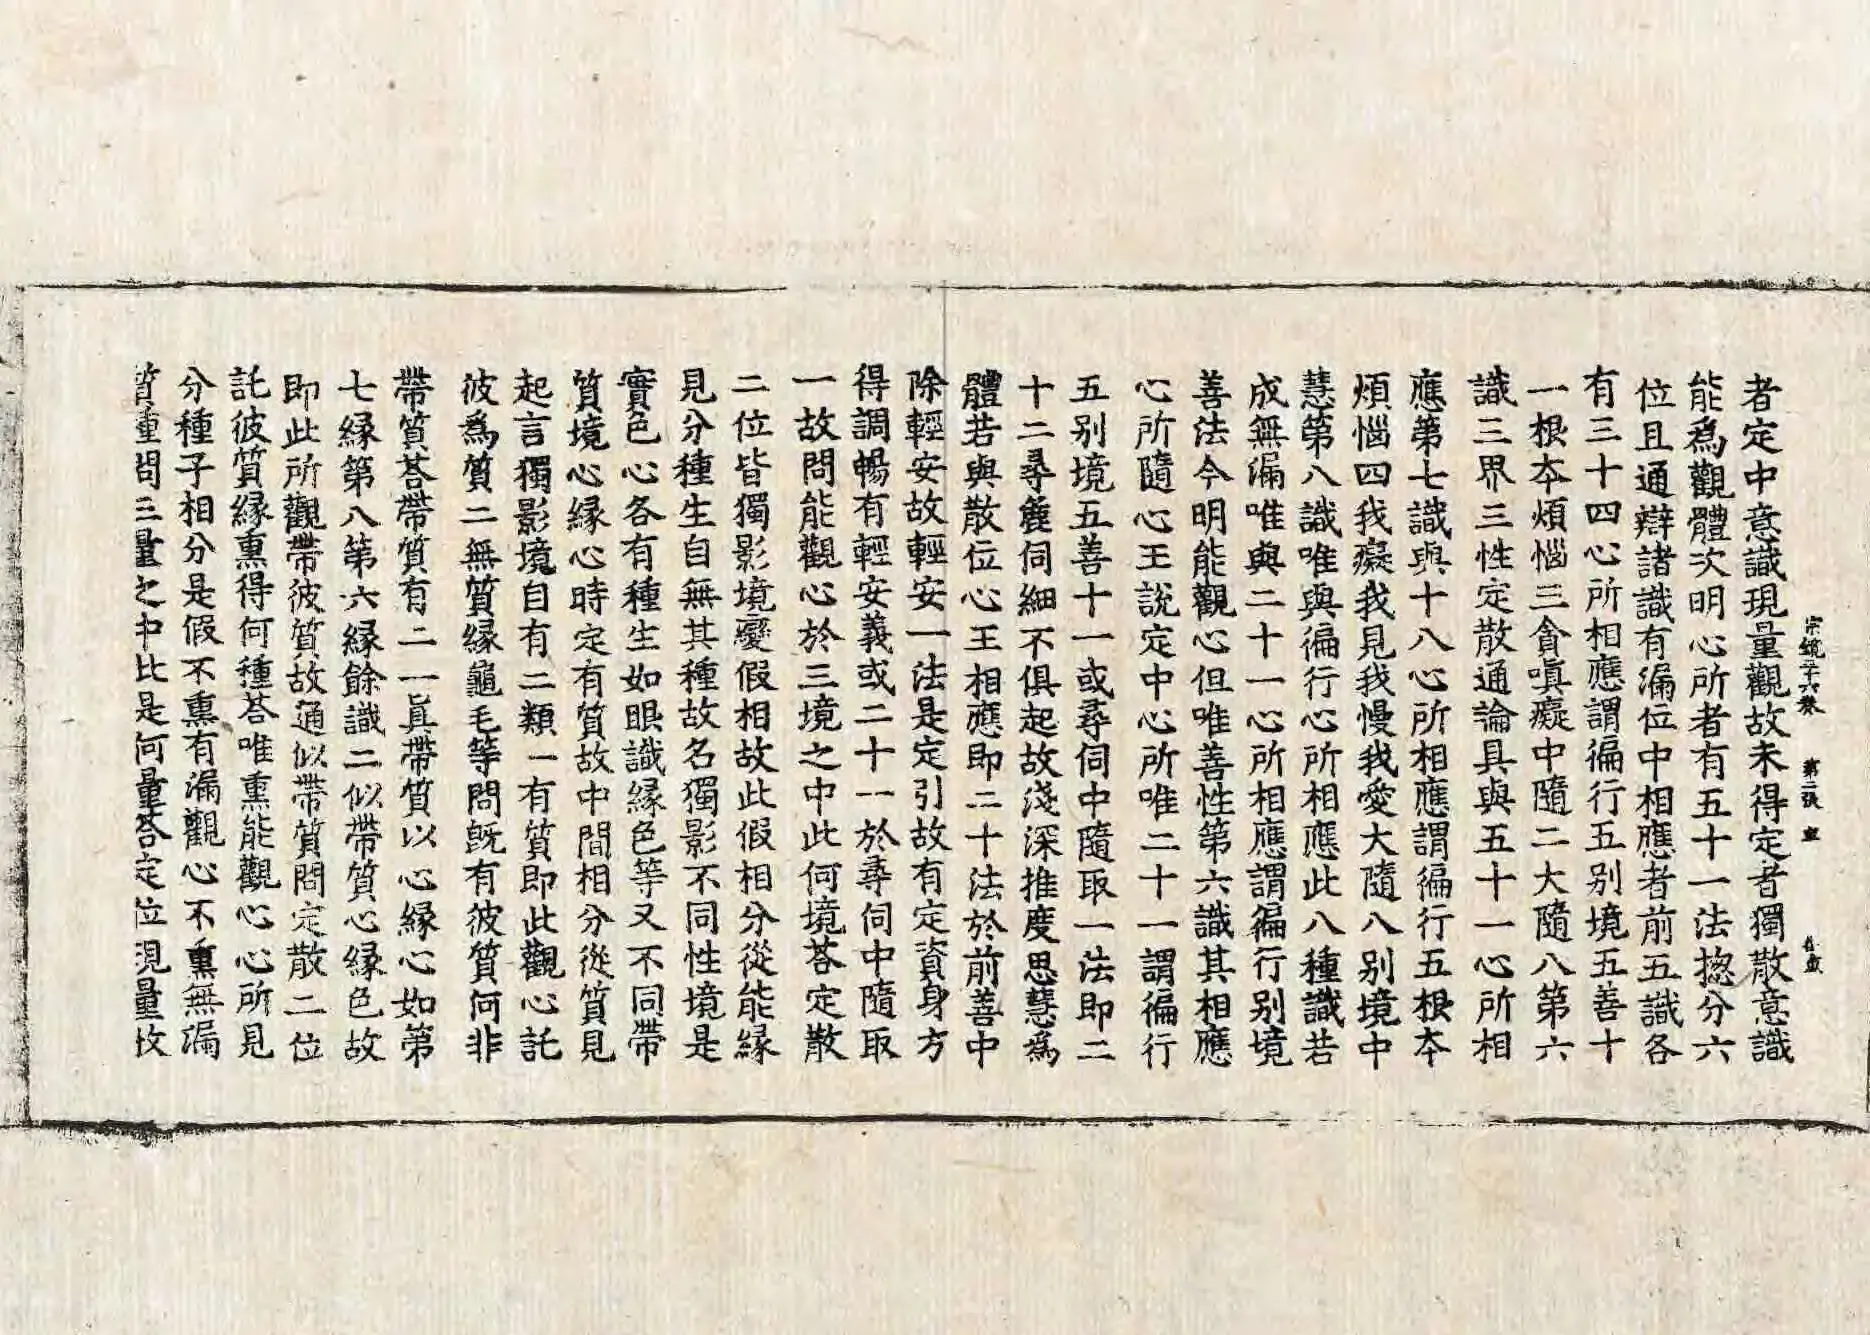 宗鏡三十六卷 第二張
者定中意識現量觀故未得定者獨散意識
能爲觀體次明心所者有五十一法揔分六
位且通辯諸識有漏位中相應者前五識各
有三十四心所相應謂徧行五别境五善十
一根本煩惱三貪嗔癡中隨二大隨八第六
識三界三性定散通論具與五十一心所相
應第七識與十八心所相應謂徧行五根本
煩惱四我癡我見我慢我愛大隨八别境中
慧第八識唯與徧行心所相應此八種識若
成無漏唯與二十一心所相應謂徧行别境
善法今明能觀心但唯善性第六識其相應
心所隨心王說定中心所唯二十一謂徧行
五别境五善十一或尋伺中隨取一法即二
十二尋麁伺細不俱起故淺深推度思慧爲
體若與散位心王相應即二十法於前善中
除輕安故輕安一法是定引故有定資身方
得調暢有輕安義或二十一於尋伺中隨取
一故問能觀心於三境之中此何境荅定散
二位皆獨影境變假相故此假相分從能緣
見分種生自無其種故名獨影不同性境是
實色心各有種生如眼識緣色等又不同帶
質境心緣心時定有質故中間相分從質見
起言獨影境自有二類一有質即此觀心託
彼爲質二無質緣龜毛等問旣有彼質何非
帶質荅帶質有二一眞帶質以心緣心如第
七緣第八第六緣餘識二似帶質心緣色故
即此所觀帶彼質故通似帶質問定散二位
託彼質緣熏得何種荅唯熏能觀心心所見
分種子相分是假不熏有漏觀心不熏無漏
質種問三量之中比是何量荅定位現量故